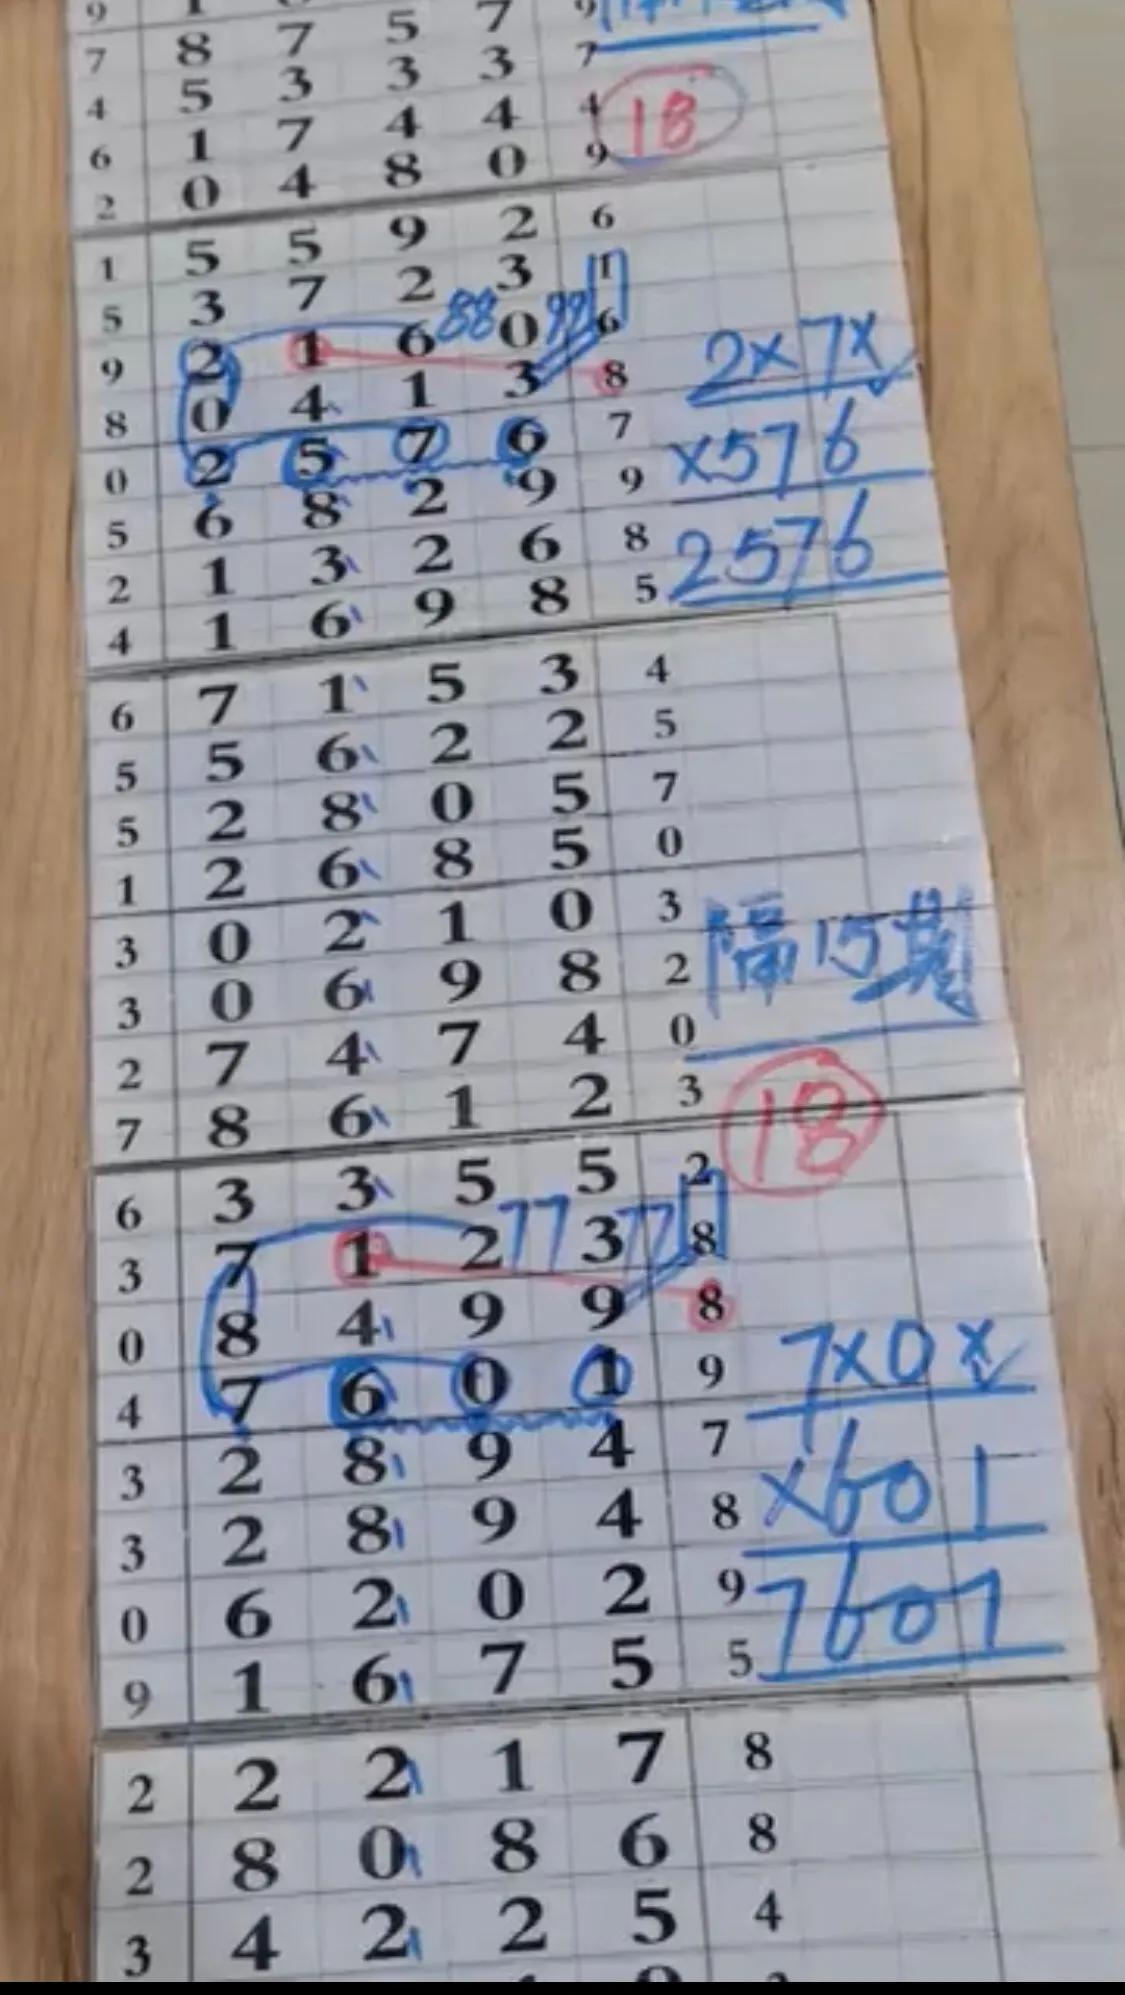 7 8 7 5 7 9
4 5 3 3 3 7
6 1 7 4 4 4 18
2 0 4 8 0 9
1 5 5 9 2 6
5 3 7 2 3 1
9 2 1 6 88 0 99 6 2×7×
8 0 4 1 3 8
0 2 5 7 6 7 ×576
5 6 8 2 9 9
2 1 3 2 6 8 2576
4 1 6 9 8 5
6 7 1 5 3 4
5 5 6 2 2 5
5 2 8 0 5 7
1 2 6 8 5 0
3 0 2 1 0 3
3 0 6 9 8 2 隔15期
2 7 4 7 4 0
7 8 6 1 2 3 18
6 3 3 5 5 2
3 7 1 2 77 3 77 8
0 8 4 9 9 8
4 7 6 0 1 9 7×0×
3 2 8 9 4 7
3 2 8 9 4 8 ×601
0 6 2 0 2 9 7601
9 1 6 7 5 5
2 2 2 1 7 8
2 8 0 8 6 8
3 4 2 2 5 4